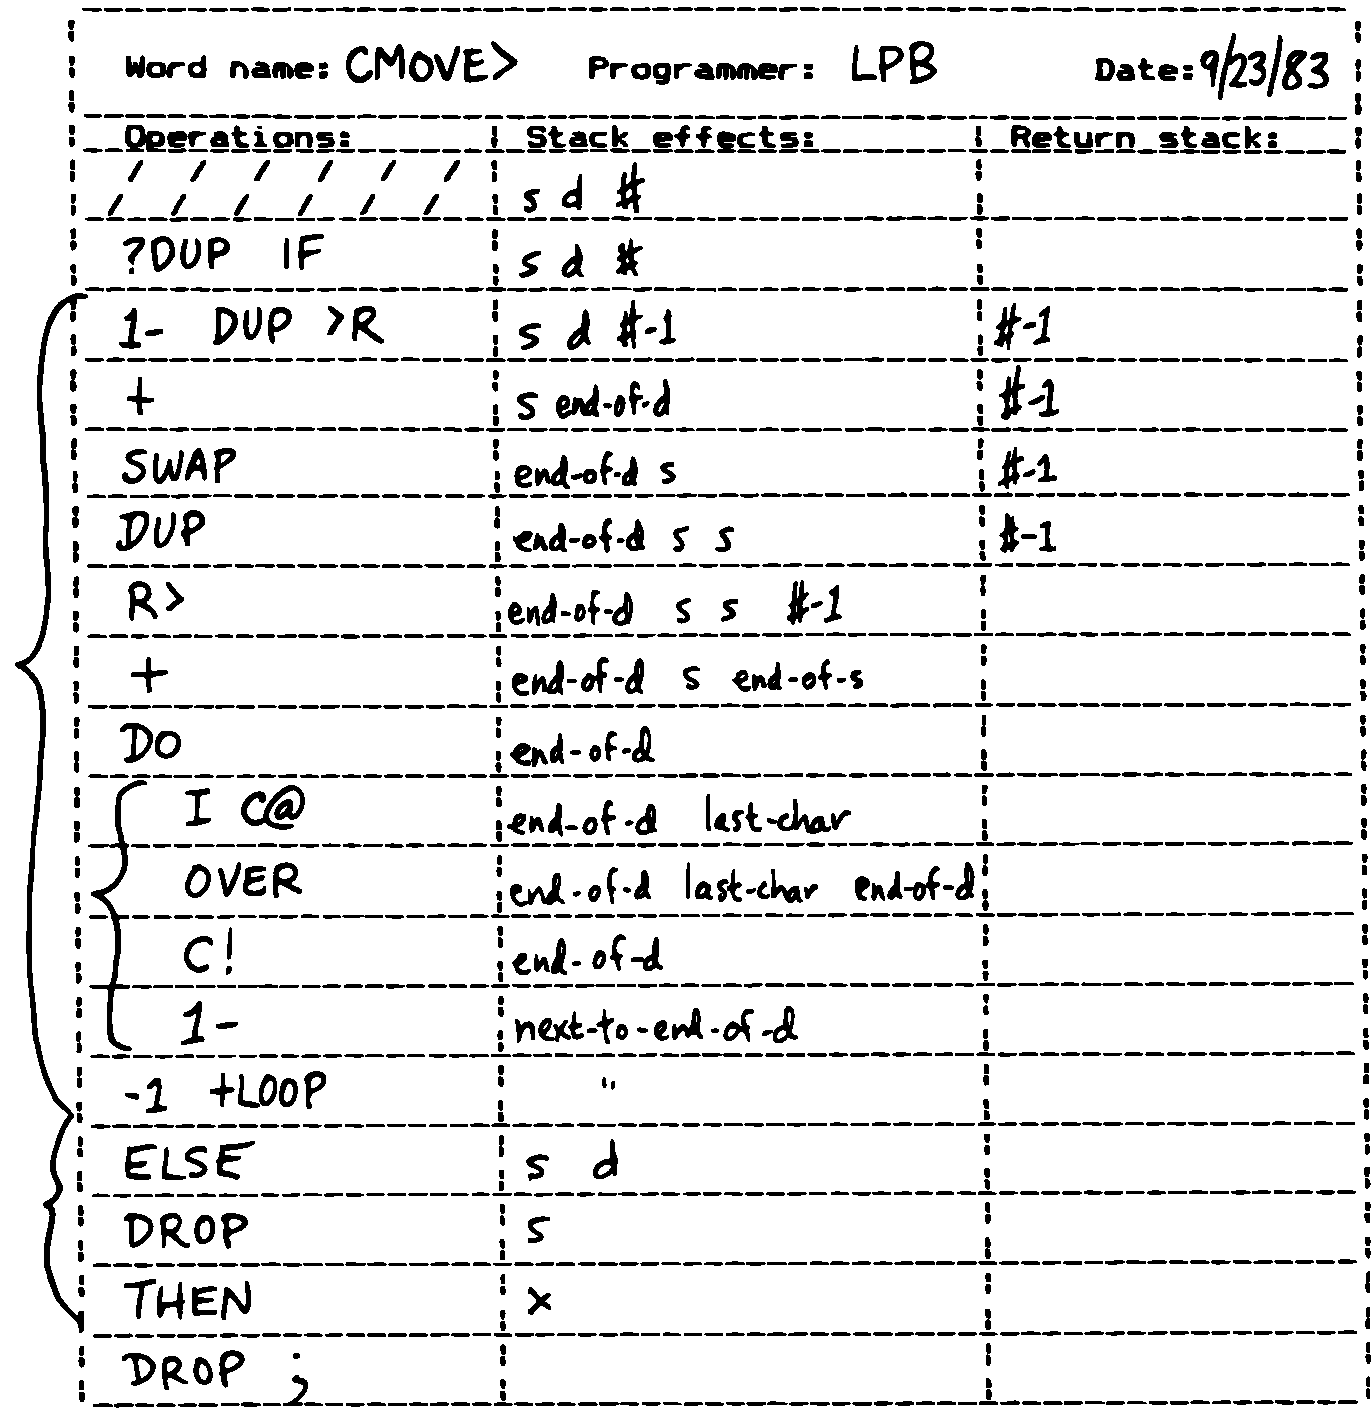 Word name: CMOVE> Programmer: LPB Date: 9/23/83
Operations: Stack effects: Return stack:
s d #
?DUP IF s d #
1- DUP >R s d #-1 #-1
+ s end-of-d #-1
SWAP end-of-d s #-1
DUP end-of-d s s #-1
R> end-of-d s s #-1
+ end-of-d s end-of-s
DO end-of-d
I C@ end-of-d last-char
OVER end-of-d last-char end-of-d
C! end-of-d
1- next-to-end-of-d
-1 +LOOP "
ELSE s d
DROP s
THEN x
DROP ;